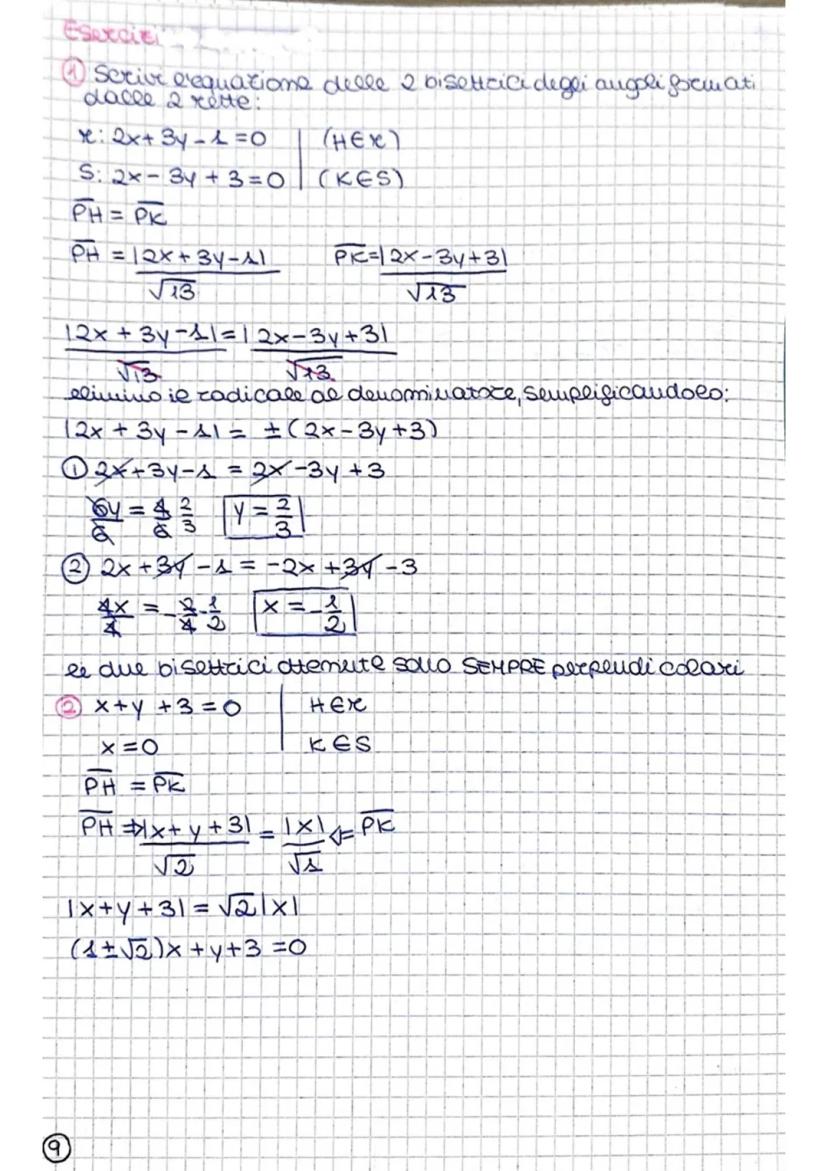 Esercizi
① Scrivi l'equazione delle 2 bisettrici degli angoli formati
dalle 2 rette:
r: 2x+3y-1=0 | (H∈r)
S: 2x-3y+3=0 | (K∈S)
P̅H̅ = P̅K̅
P̅H̅ = |2x+3y-1|/√13 P̅K̅=|2x-3y+3|/√13
|2x+3y-1|/√13 = |2x-3y+3|/√13
elimino il radicale al denominatore, semplificandolo:
|2x+3y-1| = ±(2x-3y+3)
① 2x+3y-1 = 2x-3y+3
6y/6 = 4/6 2/3 y = 2/3
② 2x+3y-1 = -2x+3y-3
4x/4 = -2/4 -1/2 x = -1/2
le due bisettrici ottenute sono SEMPRE perpendicolari
② x+y+3=0 | H∈r
x=0 | K∈S
P̅H̅ = P̅K̅
P̅H̅ ⇒ |x+y+3|/√2 = |x|/√1 ⇐ P̅K̅
|x+y+3| = √2|x|
(1±√2)x+y+3=0
9